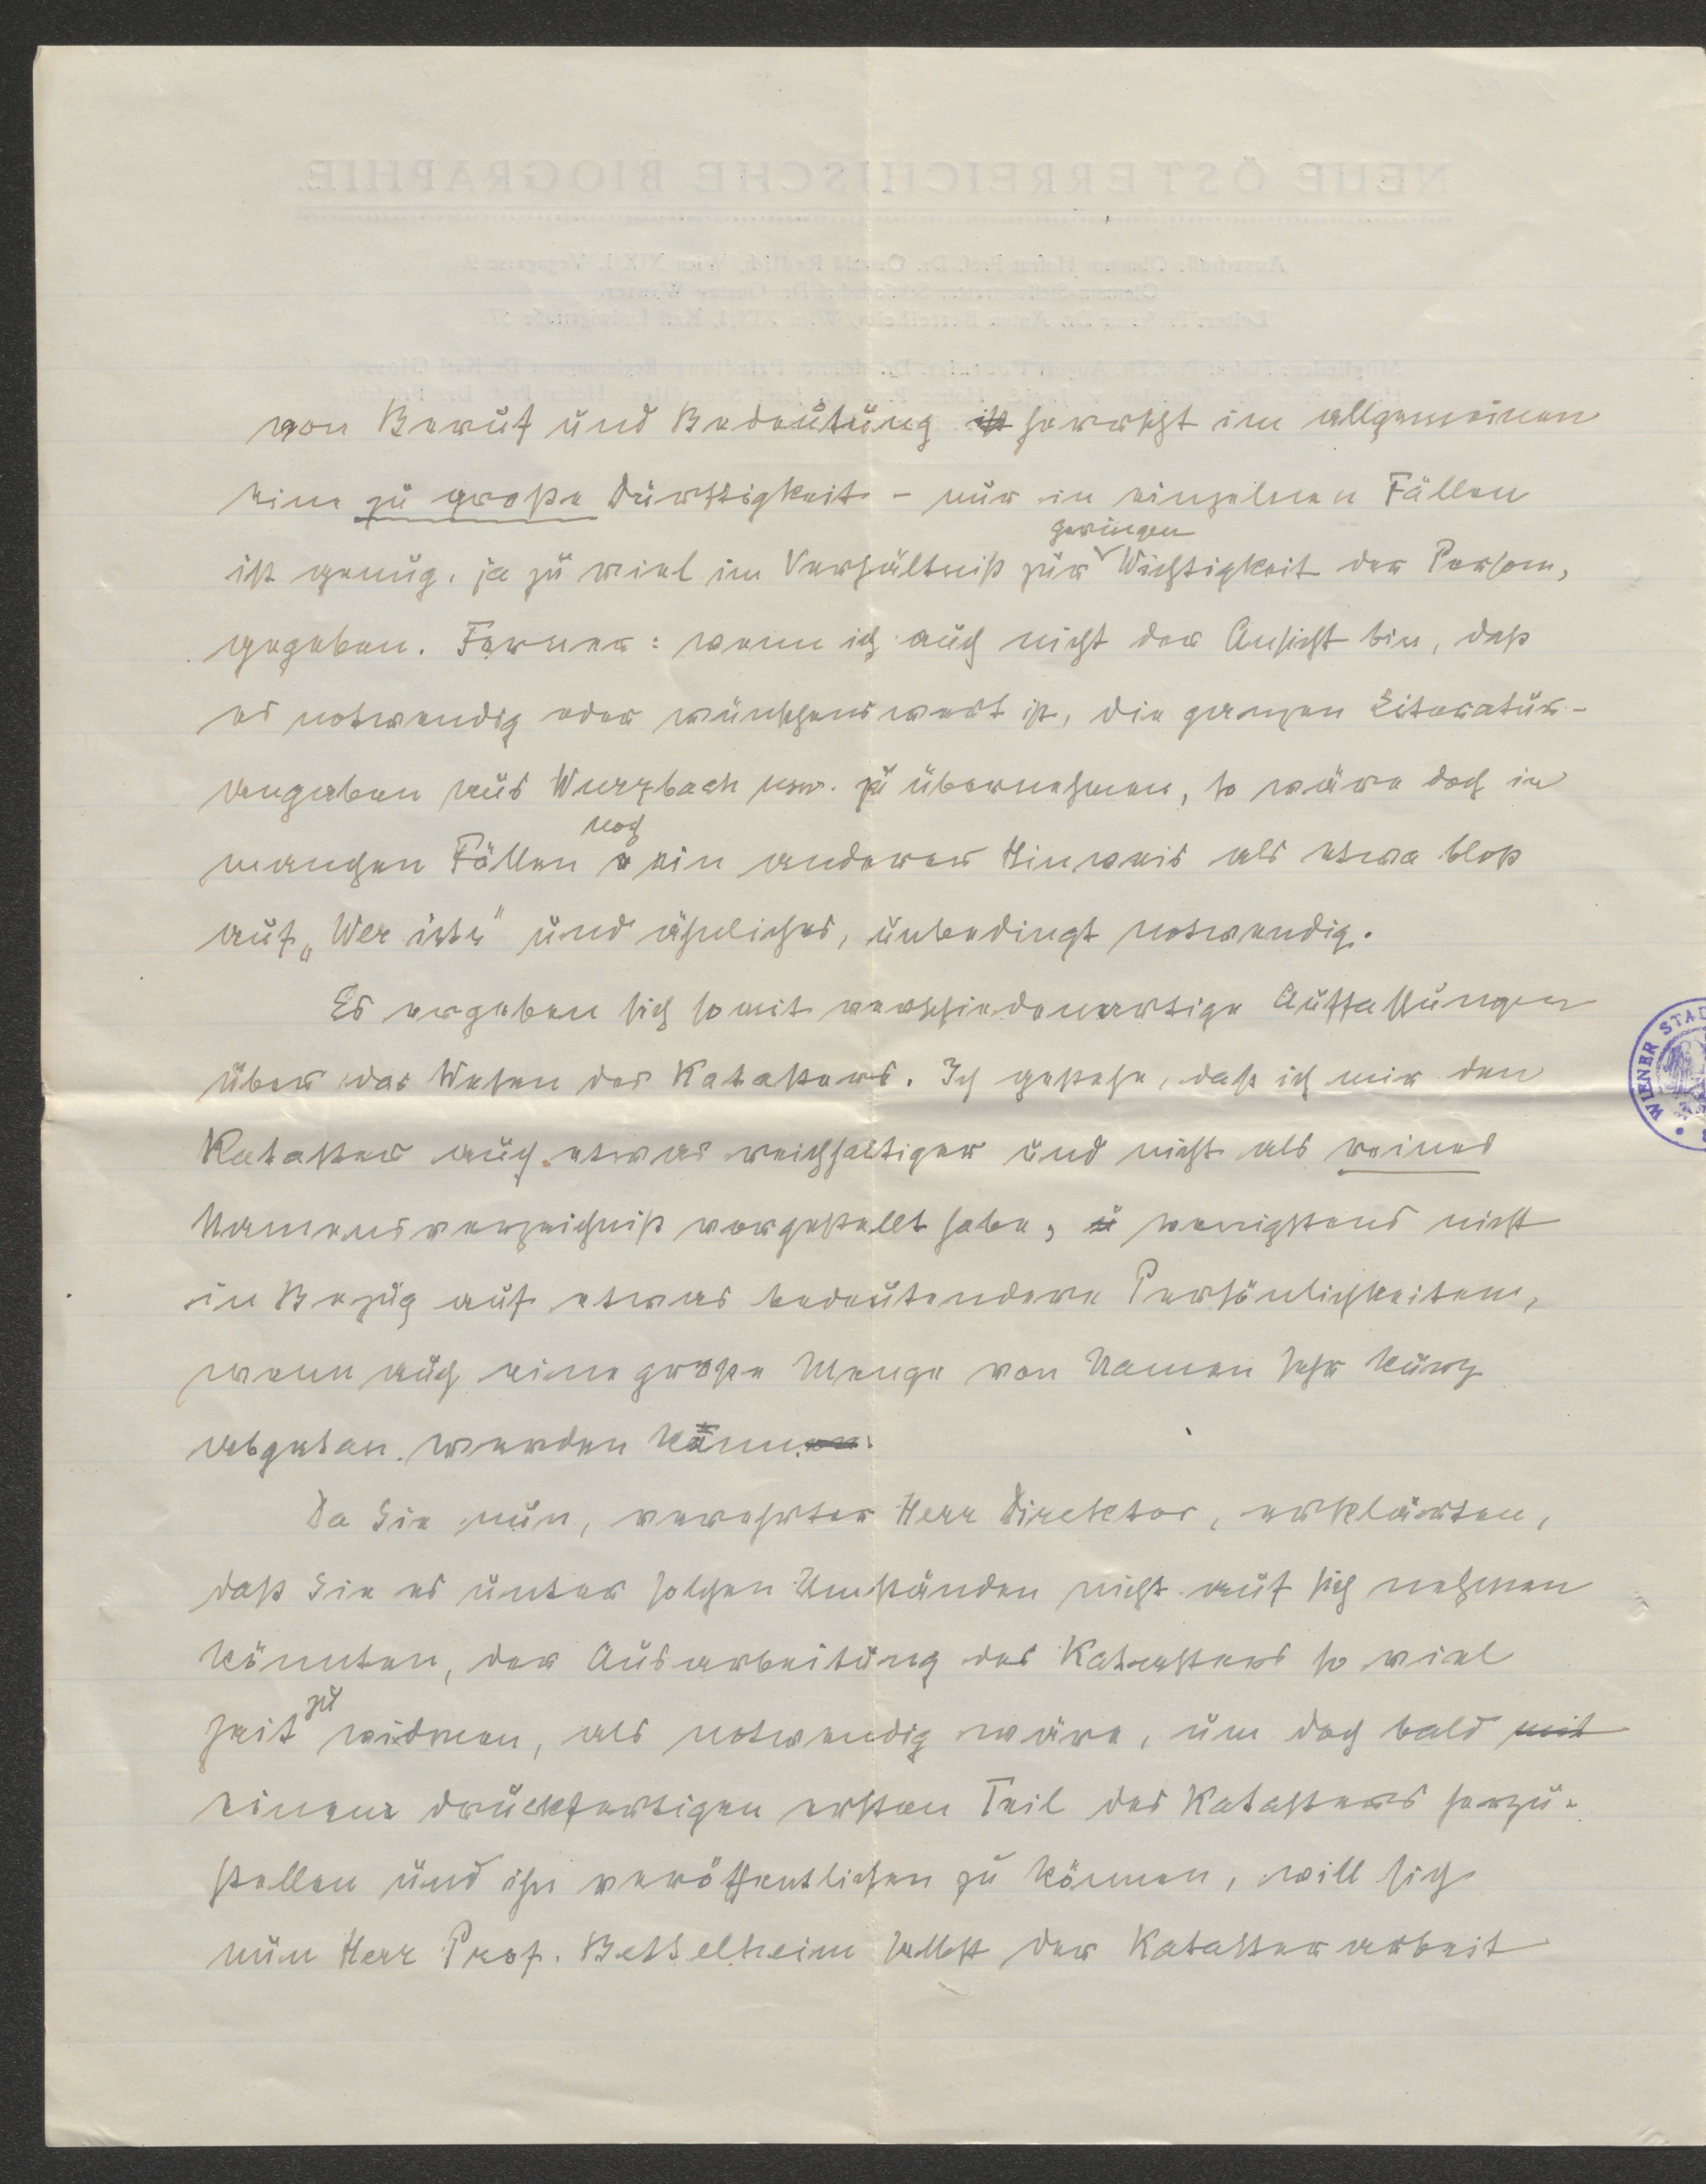 von Beruf und Bedeutung ist herrscht im allgemeinen
eine zu große Dürftigkeit – nur in einzelnen Fällen
ist genug, ja zu viel im Verhältniß zur geringen Wichtigkeit der Person,
gegeben. Ferner: wenn ich auch nicht der Ansicht bin, daß
es notwendig oder wünschenswert ist, die ganzen Literatur-
angaben aus Wurzbach usw. zu übernehmen, so wäre doch in
manchen Fällen noch ein anderer Hinweis als etwa bloß
auf „Wer ists" und ähnliches, unbedingt notwendig.
Es ergeben sich somit verschiedenartige Auffassungen
über das Wesen des Katasters. Ich gestehe, daß ich mir den
Kataster auch etwas reichhaltiger und nicht als reines
Namensverzeichniß vorgestellt habe, u wenigstens nicht
in Bezug auf etwas bedeutendere Persönlichkeiten,
wenn auch eine große Menge von Namen sehr kurz
abgetan werden kann.
Da Sie nun, verehrter Herr Direktor, erklärten,
daß Sie es unter solchen Umständen nicht auf sich nehmen
könnten, der Ausarbeitung des Katasters so viel
Zeit zu widmen, als notwendig wäre, um doch bald mit
einen druckfertigen ersten Teil des Katasters herzu-
stellen und ihn veröffentlichen zu können, will sich
nun Herr Prof. Bettelheim selbst der Katasterarbeit
NEUE ÖSTERREICHISCHE BIOGRAPHIE
WIENER STAD